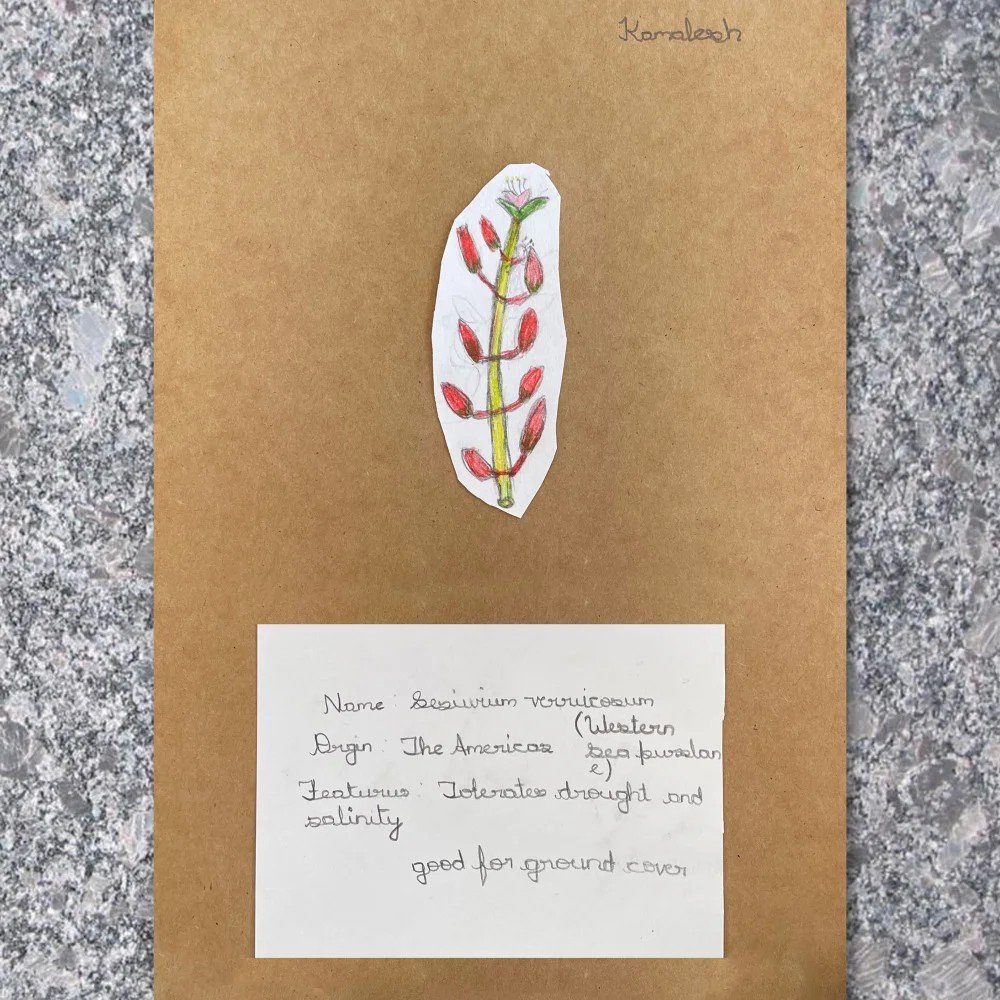 Kamalesh
Name : Sesuvium verrucosum
(Western
Orgin : The Americas Sea purslan
e)
Features : Tolerates drought and
salinity
good for ground cover